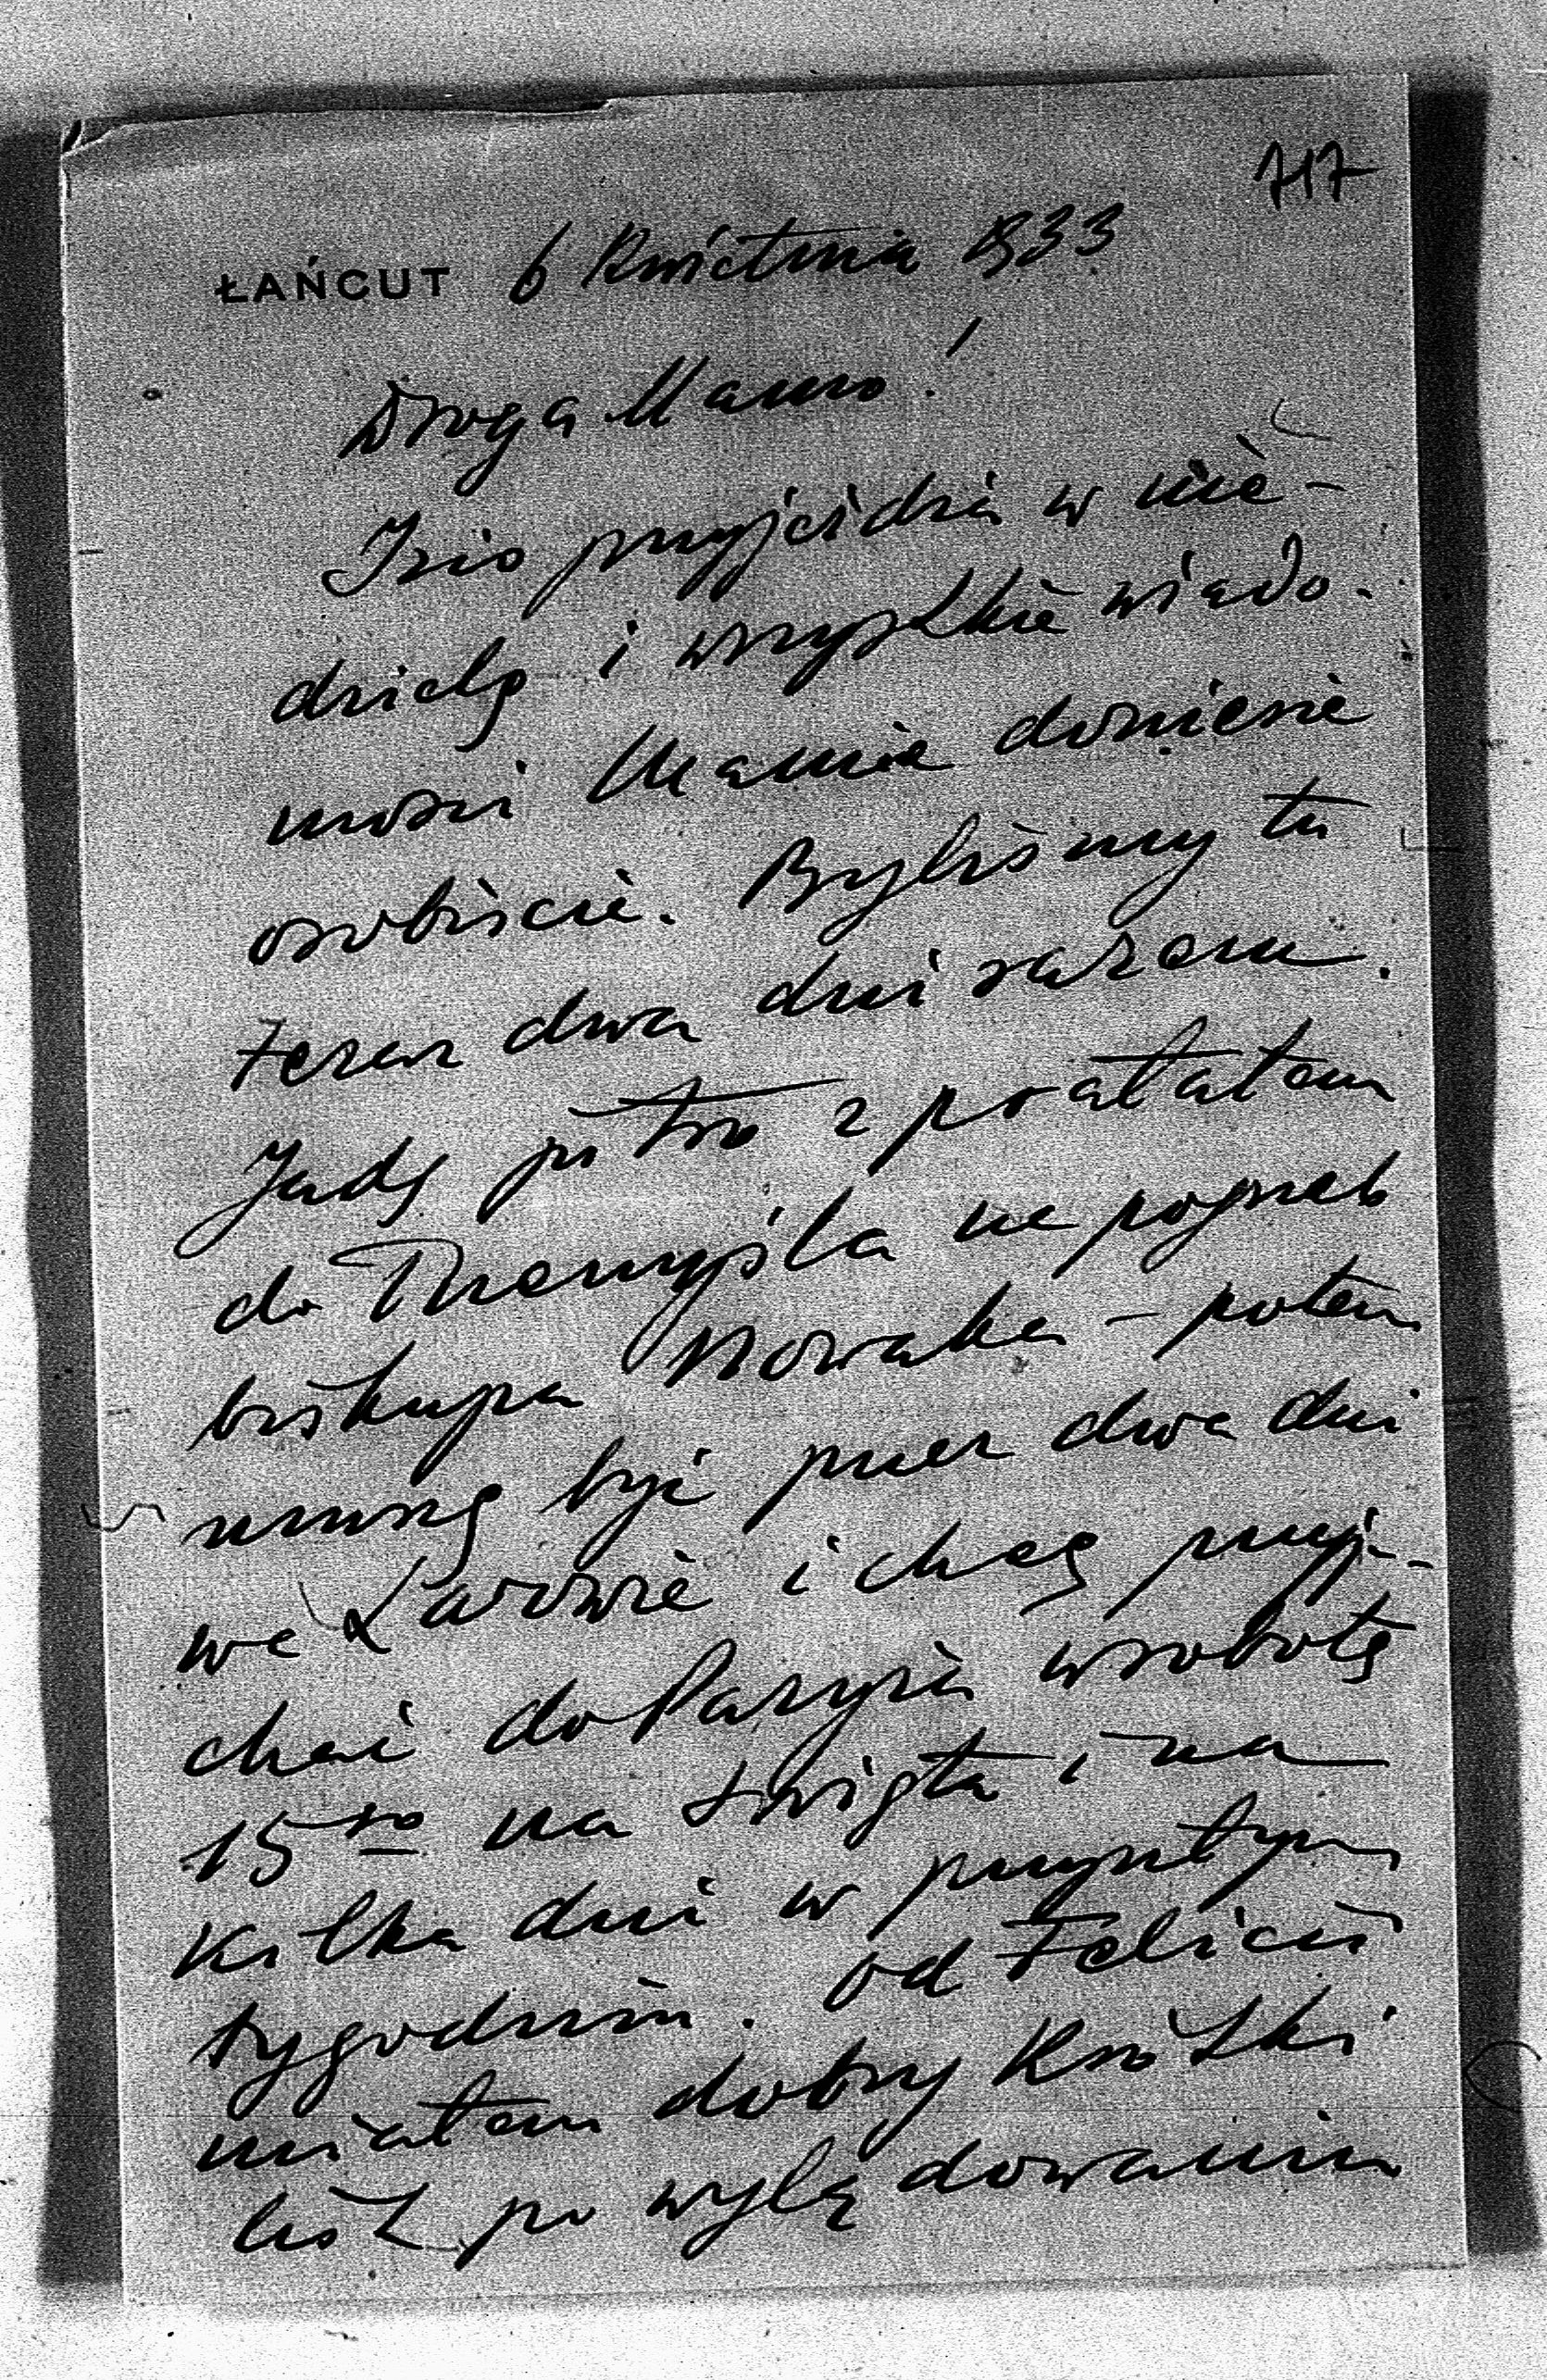 717
ŁAŃCUT 6 Kwietnia 1933
Droga Mamo!
Izio przyjeżdża w nie-
dzielę i wszystkie wiado-
mości Mamie doniesie
osobiście. Byliśmy tu
teraz dwa dni razem.
Jadę jutro z prałatem
do Przemyśla na pogrzeb
biskupa Nowaka – potem
muszę być przez dwa dni
we Lwowie i chcę przyje-
chać do Paryża w sobotę
15go na Święta i na
kilka dni w przyszłym
tygodniu. od Felicii
miałem dobry krótki
list po wylądowaniu